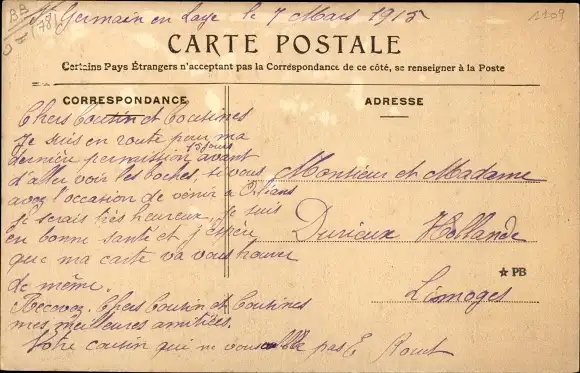 St Germain en Laye le 7 Mars 1915
1109
BB
(78)
CARTE POSTALE
Certains Pays Étrangers n'acceptant pas la Correspondance de ce côté, se renseigner à la Poste
CORRESPONDANCE
Chers Cousin et Cousines
Je suis en route pour ma
dernière permission 15 jours avant
d'aller voir les boches, si vous
avez l'occasion de venir à Orléans
je serais très heureux, je suis
en bonne santé et j'espère
que ma carte va vous trouver
de même.
Recevez Chers Cousin et Cousines
mes meilleures amitiés.
Votre cousin qui ne vous oublie pas E.
ADRESSE
Monsieur et Madame
Durieux Hollande
PB
Limoges